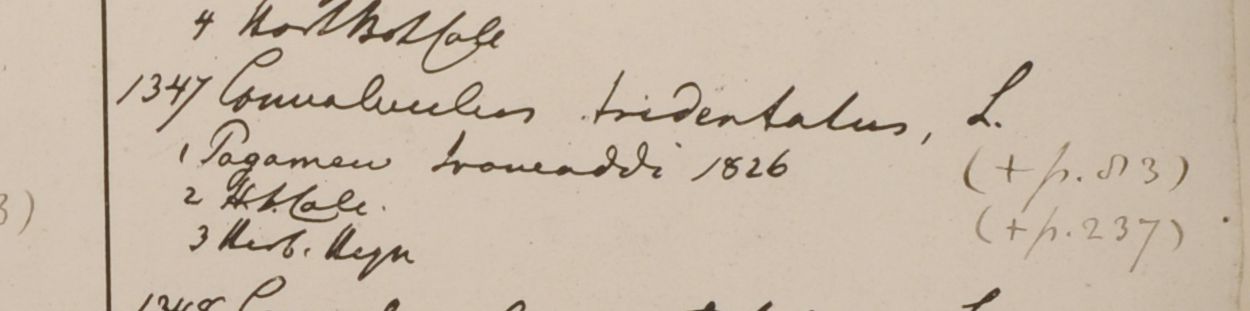 4 Hort Bot Calc
1347 Convolvulus tridentatus, L.
1 Pagamew Irowaddi 1826 (+ p. 83)
2 H.b.Calc.
3 Herb. Heyn (+ p. 237)
3)
1348 L